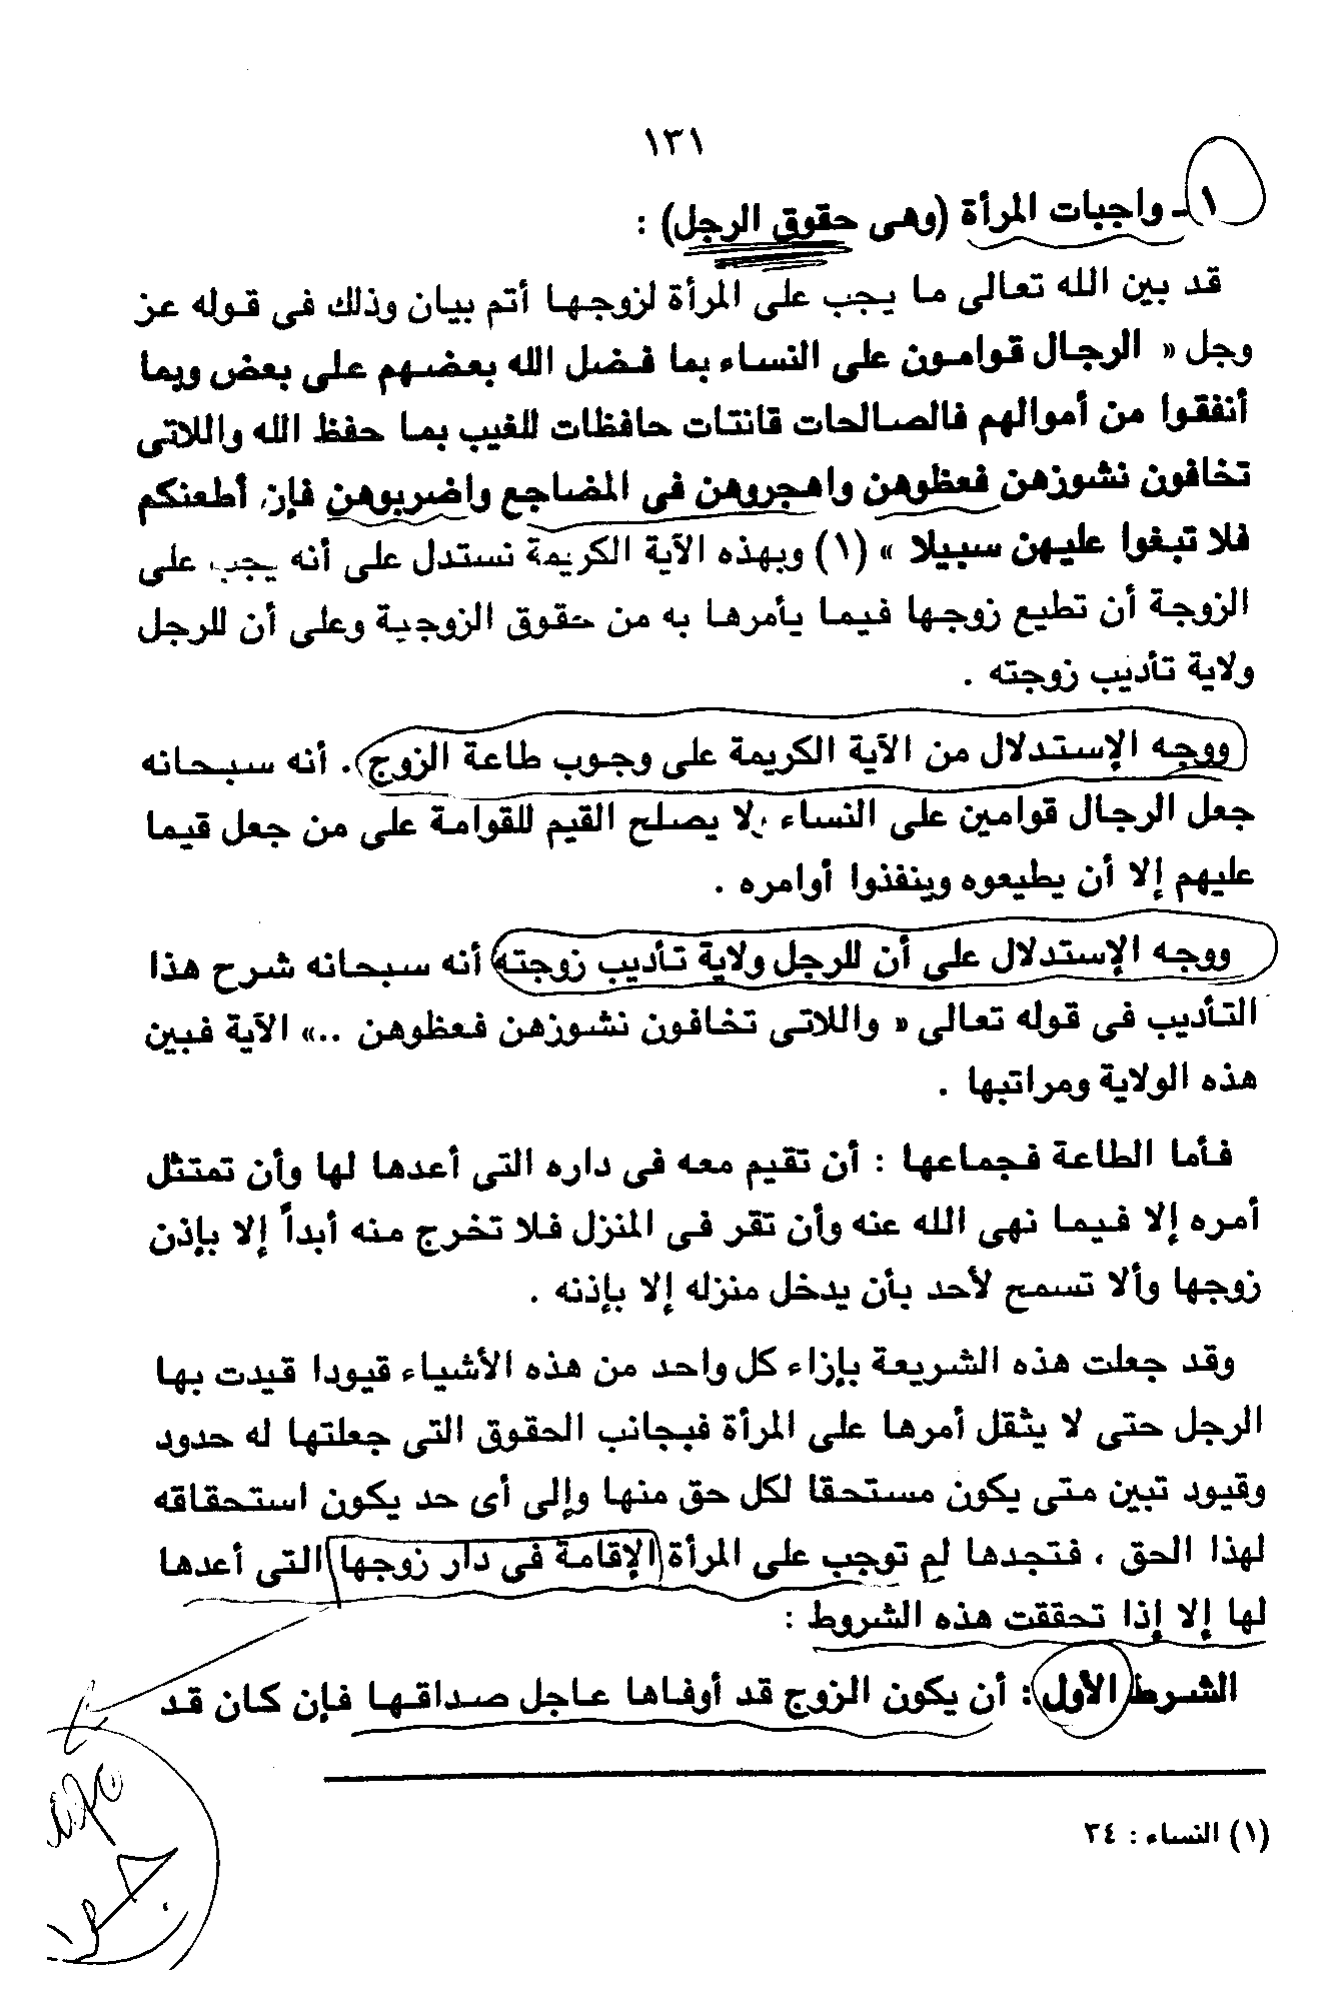 ١٣١
١ ـ واجبات المرأة (وهى حقوق الرجل) :
قد بين الله تعالى ما يجب على المرأة لزوجها أتم بيان وذلك فى قوله عز
وجل « الرجال قوامون على النساء بما فضل الله بعضهم على بعض وبما
أنفقوا من أموالهم فالصالحات قانتات حافظات للغيب بما حفظ الله واللاتى
تخافون نشوزهن فعظوهن واهجروهن فى المضاجع واضربوهن فإن أطعنكم
فلا تبغوا عليهن سبيلا » (١) وبهذه الآية الكريمة نستدل على أنه يجب على
الزوجة أن تطيع زوجها فيما يأمرها به من حقوق الزوجية وعلى أن للرجل
ولاية تأديب زوجته .
ووجه الإستدلال من الآية الكريمة على وجوب طاعة الزوج . أنه سبحانه
جعل الرجال قوامين على النساء ولا يصلح القيم للقوامة على من جعل قيما
عليهم إلا أن يطيعوه وينفذوا أوامره .
ووجه الإستدلال على أن للرجل ولاية تأديب زوجته أنه سبحانه شرح هذا
التأديب فى قوله تعالى « واللاتى تخافون نشوزهن فعظوهن ..» الآية فبين
هذه الولاية ومراتبها .
فأما الطاعة فجماعها : أن تقيم معه فى داره التى أعدها لها وأن تمتثل
أمره إلا فيما نهى الله عنه وأن تقر فى المنزل فلا تخرج منه أبداً إلا بإذن
زوجها وألا تسمح لأحد بأن يدخل منزله إلا بإذنه .
وقد جعلت هذه الشريعة بإزاء كل واحد من هذه الأشياء قيودا قيدت بها
الرجل حتى لا يثقل أمرها على المرأة فبجانب الحقوق التى جعلتها له حدود
وقيود تبين متى يكون مستحقا لكل حق منها وإلى أى حد يكون استحقاقه
لهذا الحق ، فتجدها لم توجب على المرأة الإقامة فى دار زوجها التى أعدها
لها إلا إذا تحققت هذه الشروط :
الشرط الأول : أن يكون الزوج قد أوفاها عاجل صداقها فإن كان قد
(١) النساء : ٣٤